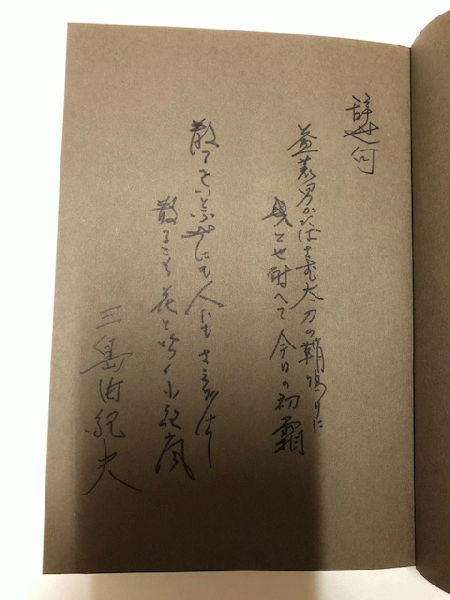 辞世句
益荒男がたばさむ太刀の鞘鳴りに
幾とせ耐へて今日の初霜
散るをいとふ世にも人にもさきがけて
散るこそ花と吹く小夜嵐
三島由紀夫